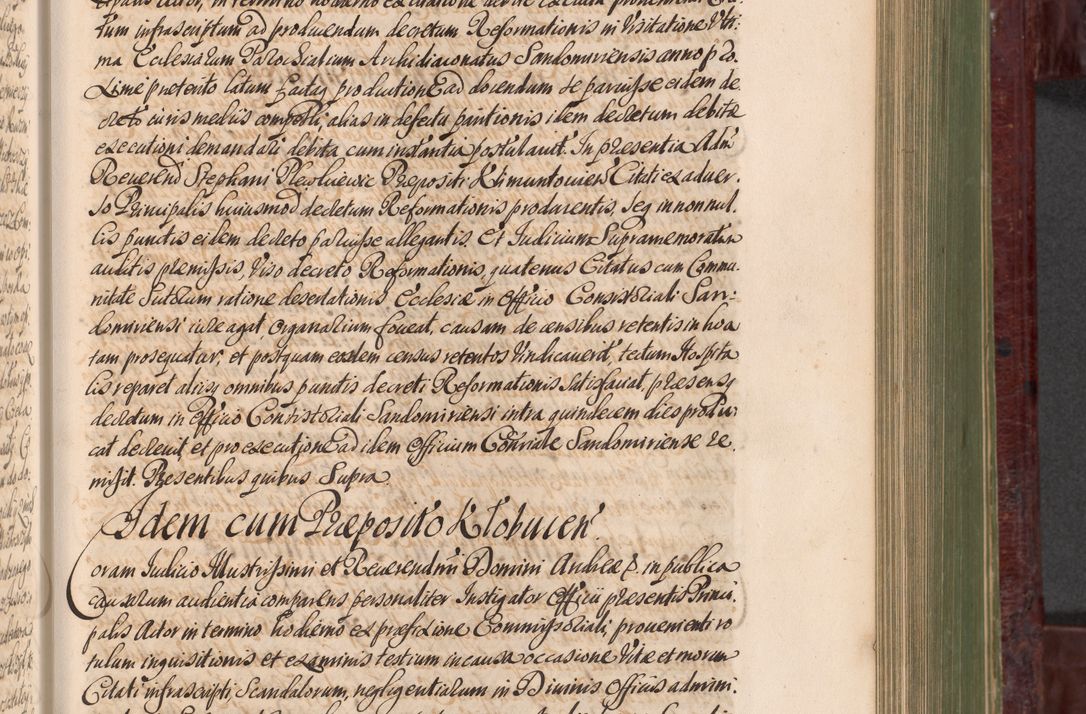 tum infrascriptum ad producendum decretum Reformationis in Visitatione Ulti-
ma Ecclesiarum Parochialium Archidiaconatus Sandomiriensis anno pro-
xime preterito latum factaq productione ad docendum se paruisse eidem de-
creto iuris mediis compelli, alias in defectu paritionis idem decretum debitæ
executioni demandari debita cum instantia postulavit. In præsentia Adm
Reverend Stephani Præpositi Klimuntovien Citati ex adver-
so Principalis huiusmod decretum Reformationis producentis, seq in nonnul-
lis punctis eidem decreto paruisse allegantis. Et Iudicium Supramemoratum
auditis præmissis, Viso decreto Reformationis, quatenus Citatus cum Commu-
nitate Sutorum ratione desertationis Ecclesiæ in Officio Consistoriali San-
domiriensi iure agat, Organarium foveat, causam de censibus retentis in hoc
tam prosequatur, et postquam eosdem census retentos Vindicaverit, tectum Hospita-
lis reparet aliisq omnibus punctis decreti Reformationis Satisfaciat, præsensq
decretum in Officio Consistoriali Sandomiriensi intra quindecem dies produ-
cat decrevit et pro executione ad idem Officium Consriale Sandomiriense re-
misit. Præsentibus quibus Supra.
Idem cum Præposito Kłobucen.
Coram Iudicio Illustrissimi et Reverendmi Domini Andreæ &c. in publica
Causarum audientia comparens personaliter Instigator Officii præsentis Princi-
palis Actor in termino hodierno ex præfixione Commissoriali, provenienti ro-
tulum inquisitionis et examinis testium in causa occasione Vitæ et morum
Citati infrascripti Scandalorum, negligentiarum in Divinis Officiis admini-